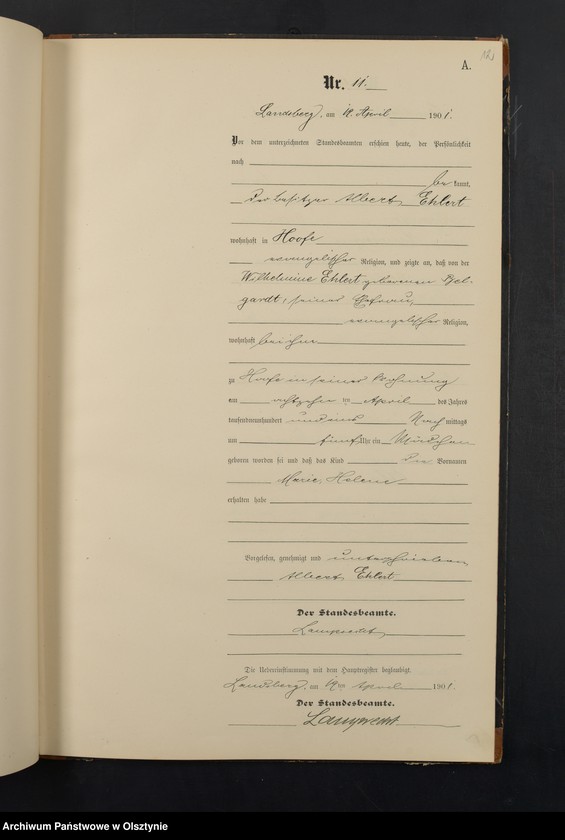 A.
Nr. 11.
Landsberg, am 19. April 1901.
Vor dem unterzeichneten Standesbeamten erschien heute, der Persönlichkeit
nach
be kannt,
Der Besitzer Albert Ehlert
wohnhaft in Hoofe
evangelischer Religion, und zeigte an, daß von der
Wilhelmine Ehlert geborenen Bel-
gardt, seiner Ehefrau,
evangelischer Religion,
wohnhaft bei ihm
zu Hoofe in seiner Wohnung
am achtzehn ten April des Jahres
tausendneunhundert und eins Nach mittags
um fünf Uhr ein Mädchen
geboren worden sei und daß das Kind die Vornamen
Marie, Helene
erhalten habe
Vorgelesen, genehmigt und unterschrieben
Albert Ehlert
Der Standesbeamte.
Die Uebereinstimmung mit dem Hauptregister beglaubigt.
Landsberg, am 19ten April 1901.
Der Standesbeamte.
Archiwum Państwowe w Olsztynie